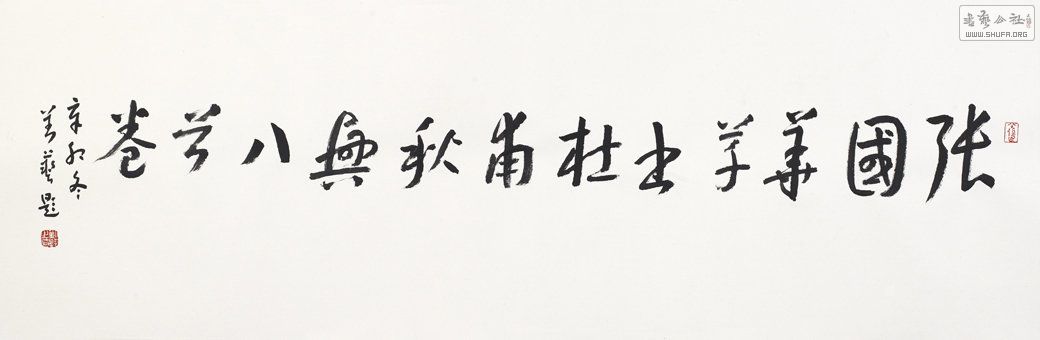 張國華草书杜甫秋興八首卷
辛卯冬
藝題
書藝公社
WWW.SHUFA.ORG